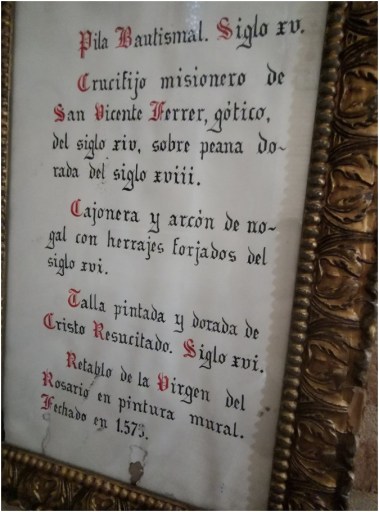 Pila Bautismal. Siglo xv.
Crucifijo misionero de
San Vicente Ferrer, gótico,
del siglo xiv, sobre peana do-
rada del siglo xviii.
Cajonera y arcón de no-
gal con herrajes forjados del
siglo xvi.
Talla pintada y dorada de
Cristo Resucitado. Siglo xvi.
Retablo de la Virgen del
Rosario en pintura mural.
Fechado en 1.573.